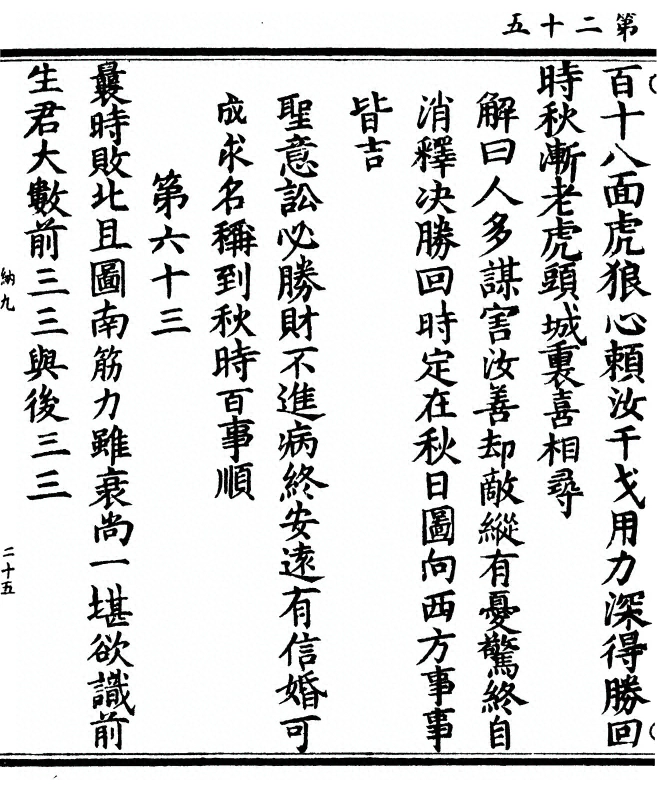 第二十五
百十八面虎狼心頼汝干戈用力深得勝回
時秋漸老虎頭城裏喜相尋
解曰人多謀害汝善却敵縱有憂驚終自
消釋決勝回時定在秋日圖向西方事事
皆吉
聖意訟必勝財不進病終安遠有信婚可
成求名稱到秋時百事順
第六十三
曩時敗北且圖南筋力雖衰尚一堪欲識前
生君大數前三三與後三三
納九
二十五